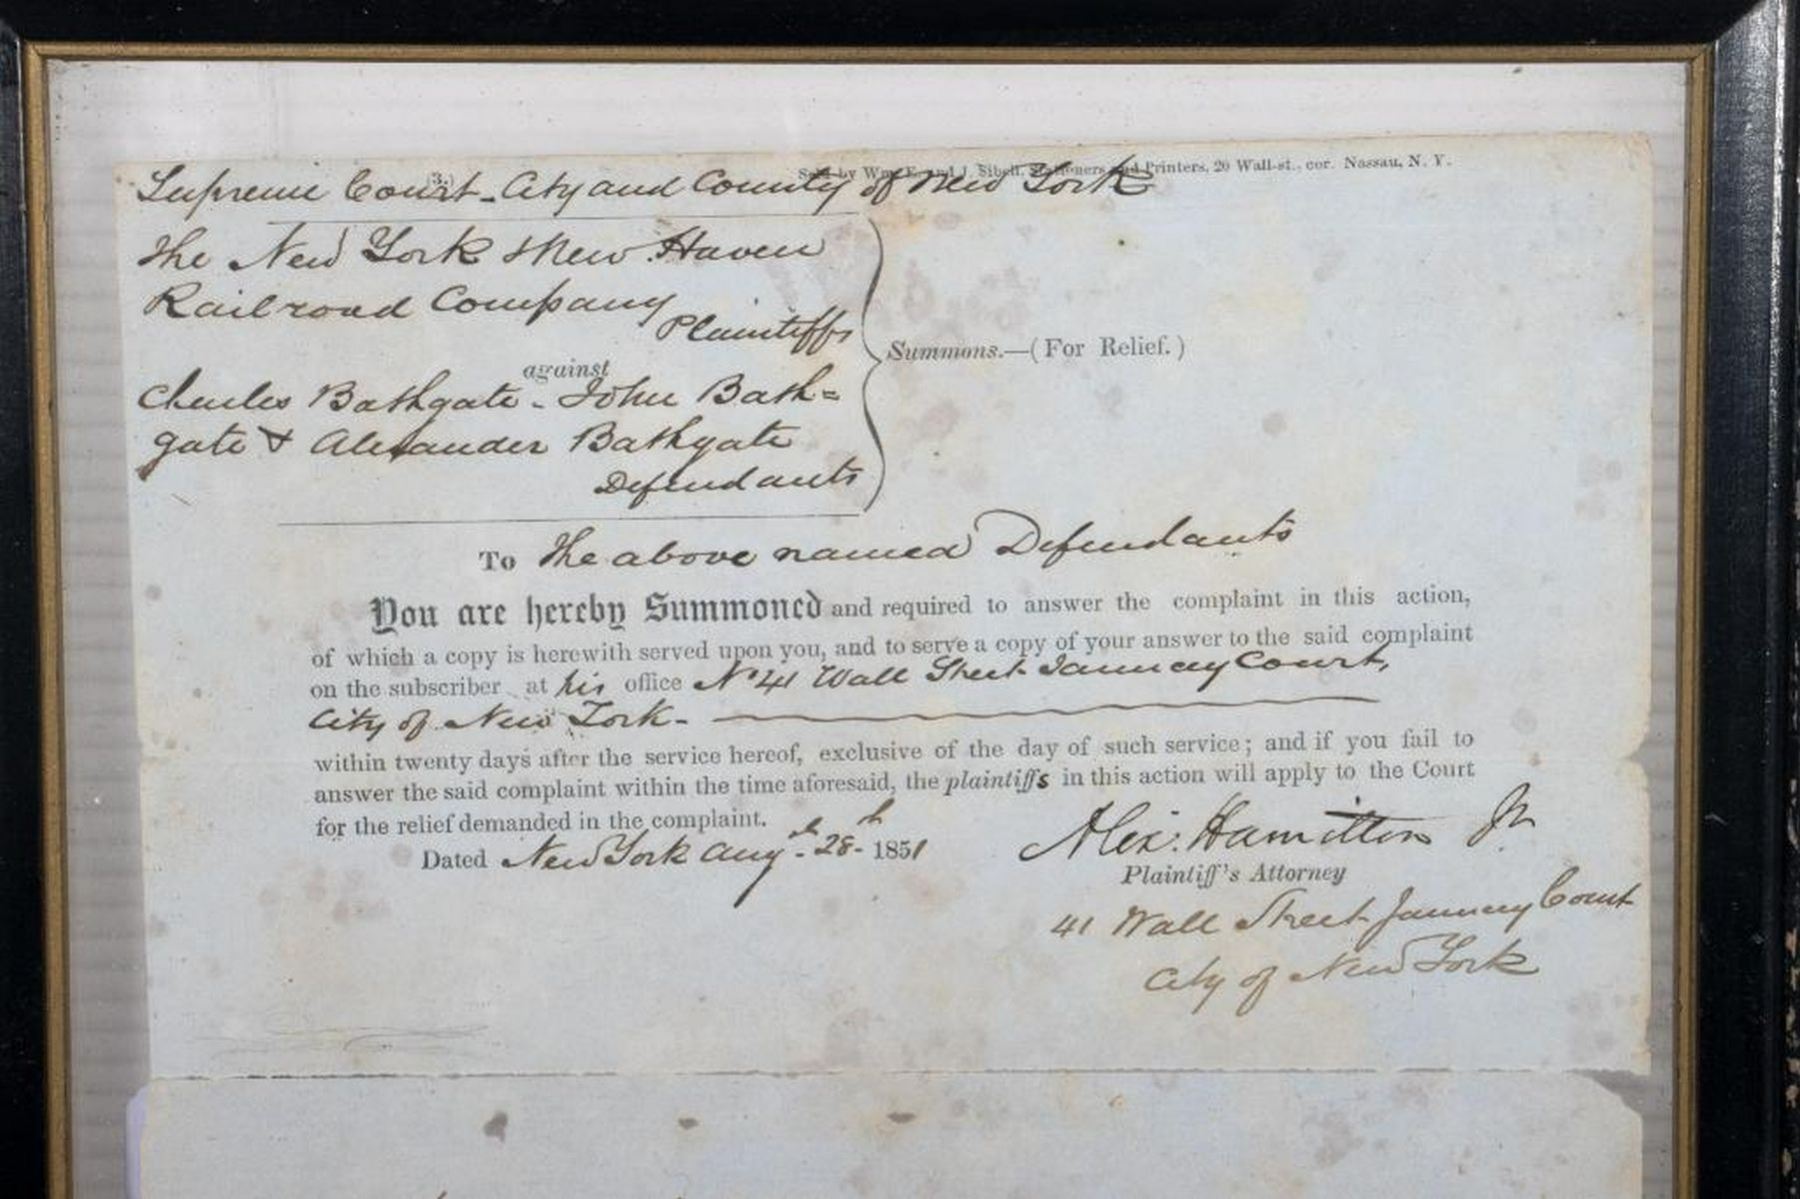 (3.)
Sold by Wm. E. and J. Sibell, Stationers and Printers, 20 Wall-st., cor. Nassau, N. Y.
Supreme Court - City and County of New York
The New York & New Haven
Railroad Company
Plaintiffs
against
Charles Bathgate - John Bath=
gate & Alexander Bathgate
Defendants
Summons.—(For Relief.)
To the above named Defendants
You are hereby Summoned and required to answer the complaint in this action,
of which a copy is herewith served upon you, and to serve a copy of your answer to the said complaint
on the subscriber at his office No 41 Wall Street Jauncey Court,
City of New York -
within twenty days after the service hereof, exclusive of the day of such service; and if you fail to
answer the said complaint within the time aforesaid, the plaintiffs in this action will apply to the Court
for the relief demanded in the complaint.
Dated New York Augt. 28th 1851
Alex: Hamilton Jr
Plaintiff's Attorney
41 Wall Street Jauncey Court
City of New York